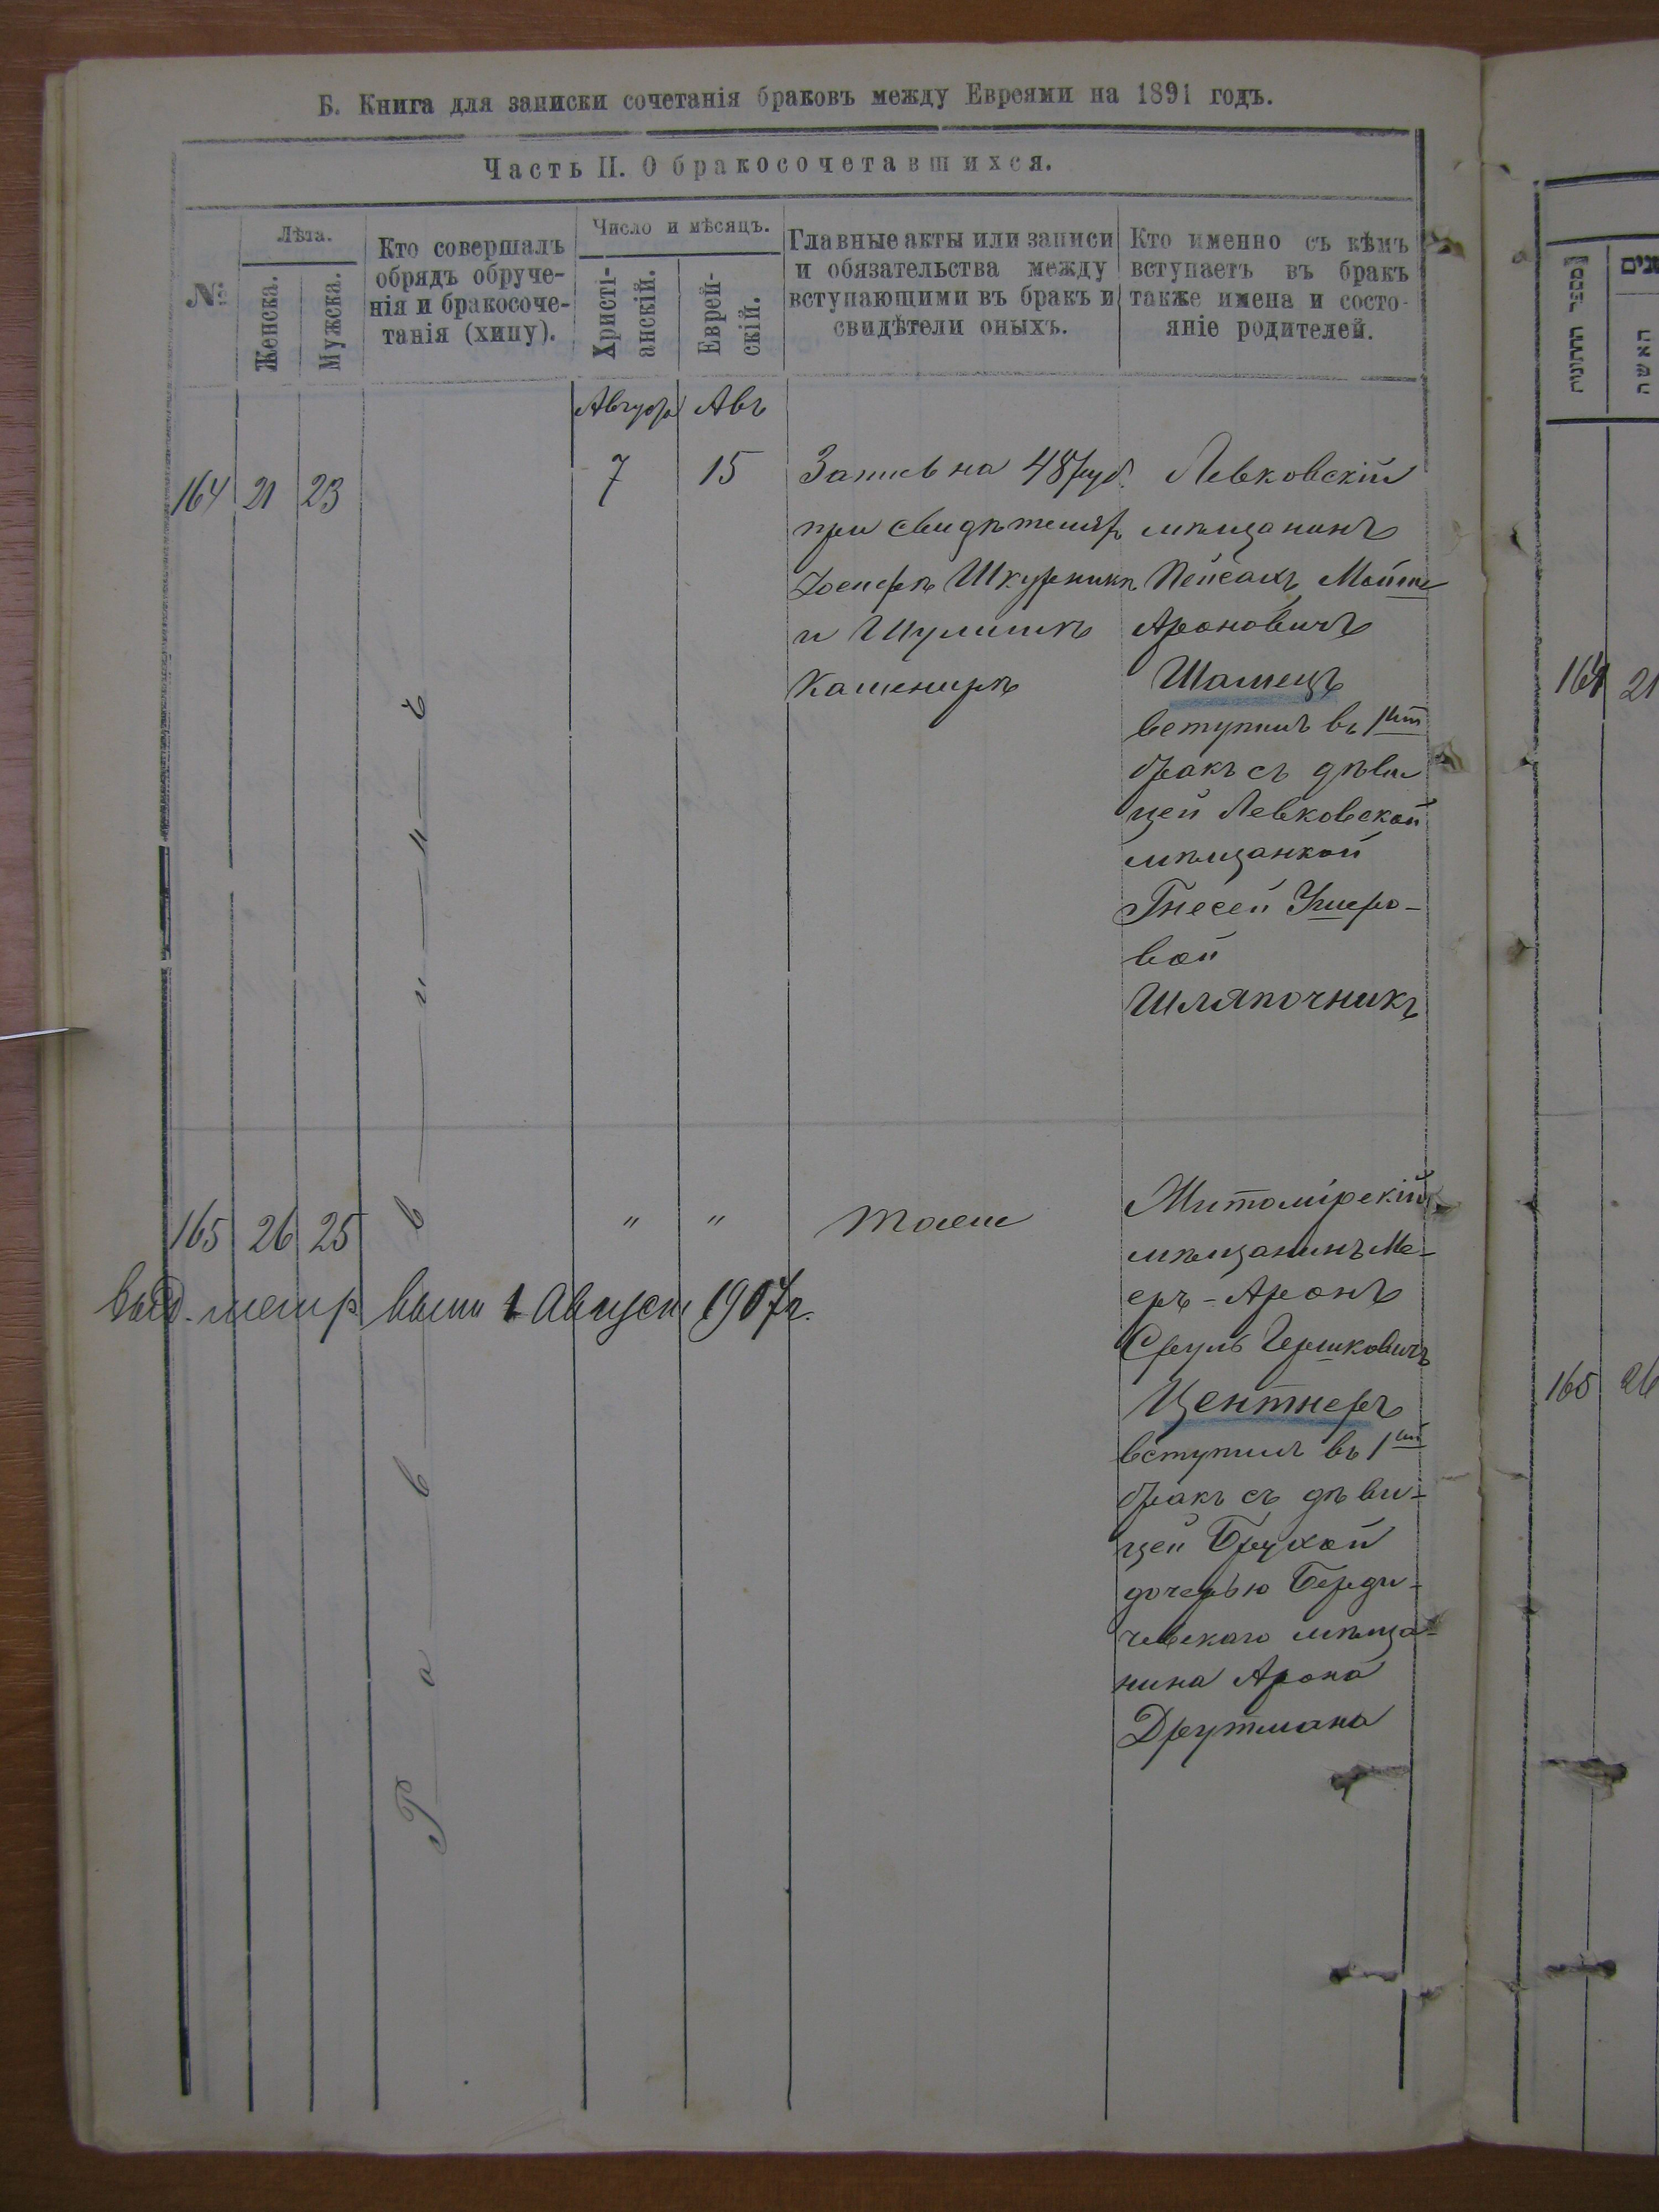 Б. Книга для записки сочетанія браковъ между Евреями на 1891 годъ.
Часть II. О бракосочетавшихся.
№
Лѣта.
Женска.
Мужска.
Кто совершалъ
обрядъ обруче-
нія и бракосоче-
танія (хипу).
Число и мѣсяцъ.
Христі-
анскій.
Еврей-
скій.
Главные акты или записи
и обязательства между
вступающими въ бракъ и
свидѣтели оныхъ.
Кто именно съ кѣмъ
вступаетъ въ бракъ
также имена и состо-
яніе родителей.
Августа Авъ
164 21 23
7 15
Запись на 48 руб.
при свидѣтеляхъ
Шкурникъ
и Шулимъ
Левковскій
мѣщанинъ
Пейсахъ Мойше
Ароновичъ
Шамецъ
вступилъ въ 1ый
бракъ съ дѣви
цей Левковской
мѣщанкой
Гнесей Ушеро-
вой
Шляпочникъ
Раввинъ
165 26 25
" "
тоже
Житомірскій
мѣщанинъ Ме-
еръ-Аронъ
Сруль Гершковичъ
Центнеръ
вступилъ въ 1ый
бракъ съ дѣви-
цей Брухой
дочерью Берди-
чевскаго мѣща-
нина Арона
Друтмана
выд. метр. выпи 1 Август 1907 г.
מספר החתונות
האשה
164 21
165 26